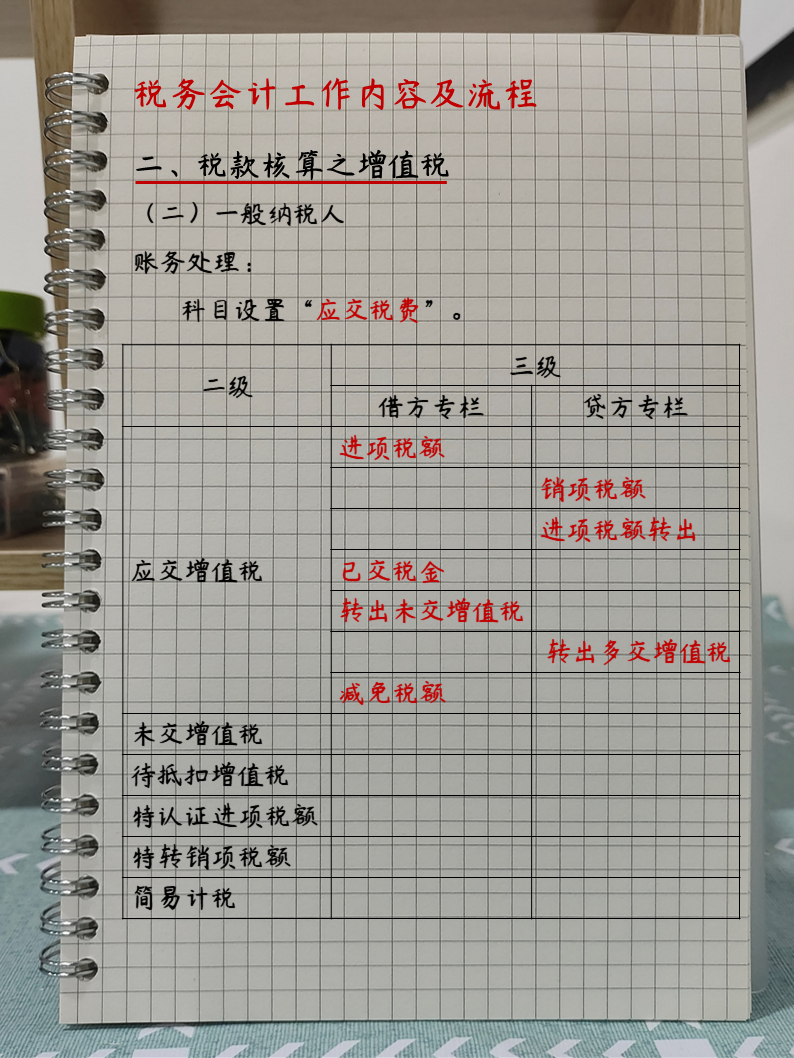 税务会计工作内容及流程
二、税款核算之增值税
（二）一般纳税人
账务处理：
科目设置“应交税费”。
二级
三级
借方专栏 贷方专栏
应交增值税
进项税额
销项税额
进项税额转出
已交税金
转出未交增值税
转出多交增值税
减免税额
未交增值税
待抵扣增值税
特认证进项税额
特转销项税额
简易计税